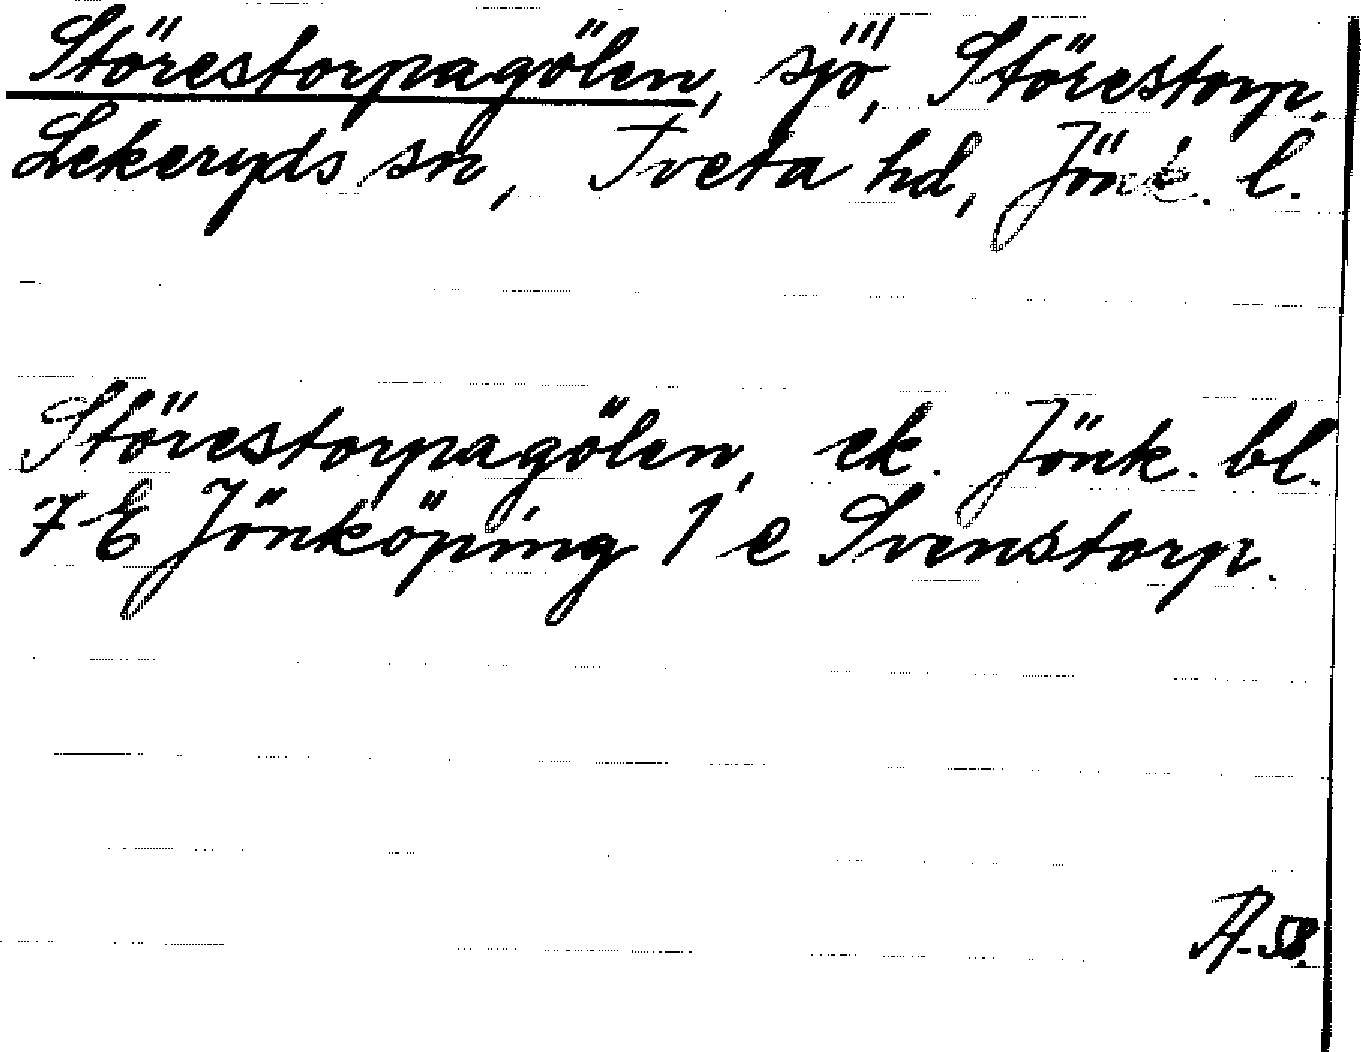 Störestorpagölen, sjö, Störestorp.
Lekeryds sn, Tveta hd, Jönk. l.
Störestorpagölen, ek. Jönk. bl.
7 E Jönköping 1 e Svenstorp.
58.